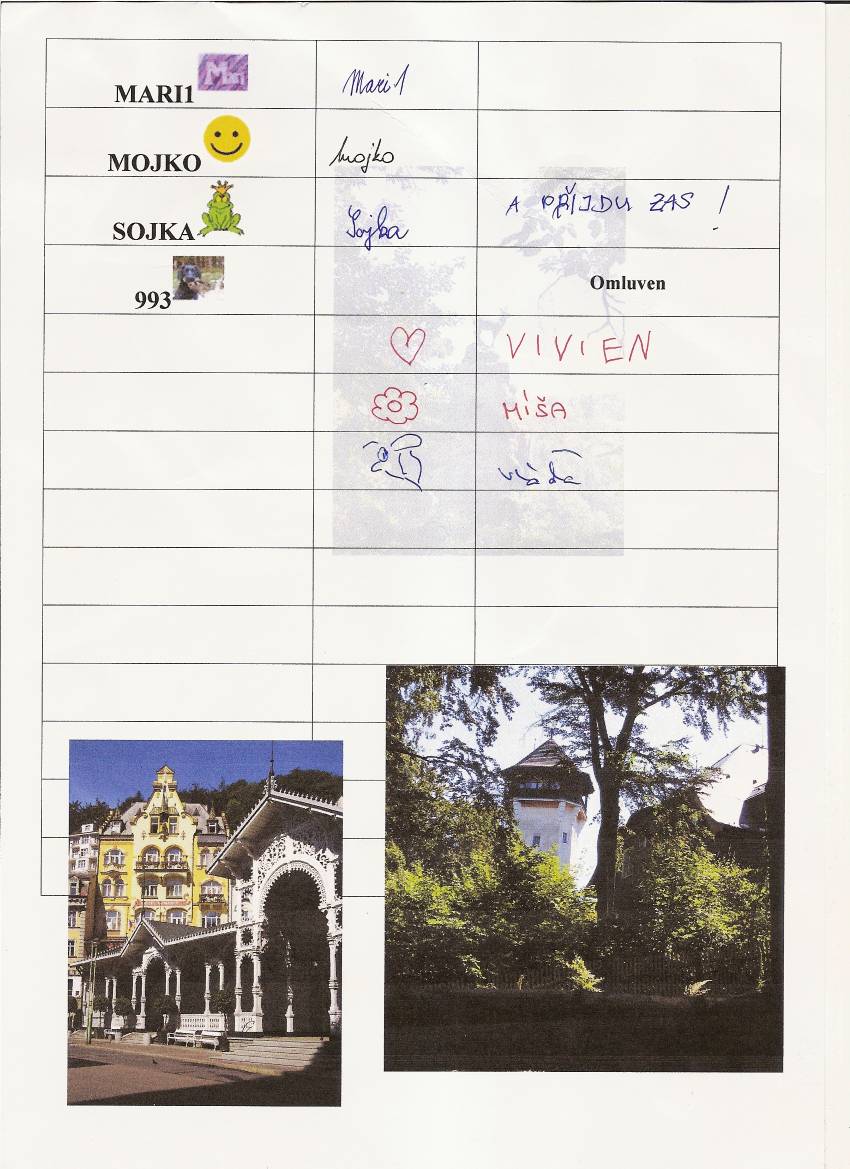 MARI1 Mari Mari1
MOJKO Mojko
SOJKA Sojka A PŘIJDU ZAS !
993 Omluven
VIVIEN
MÍŠA